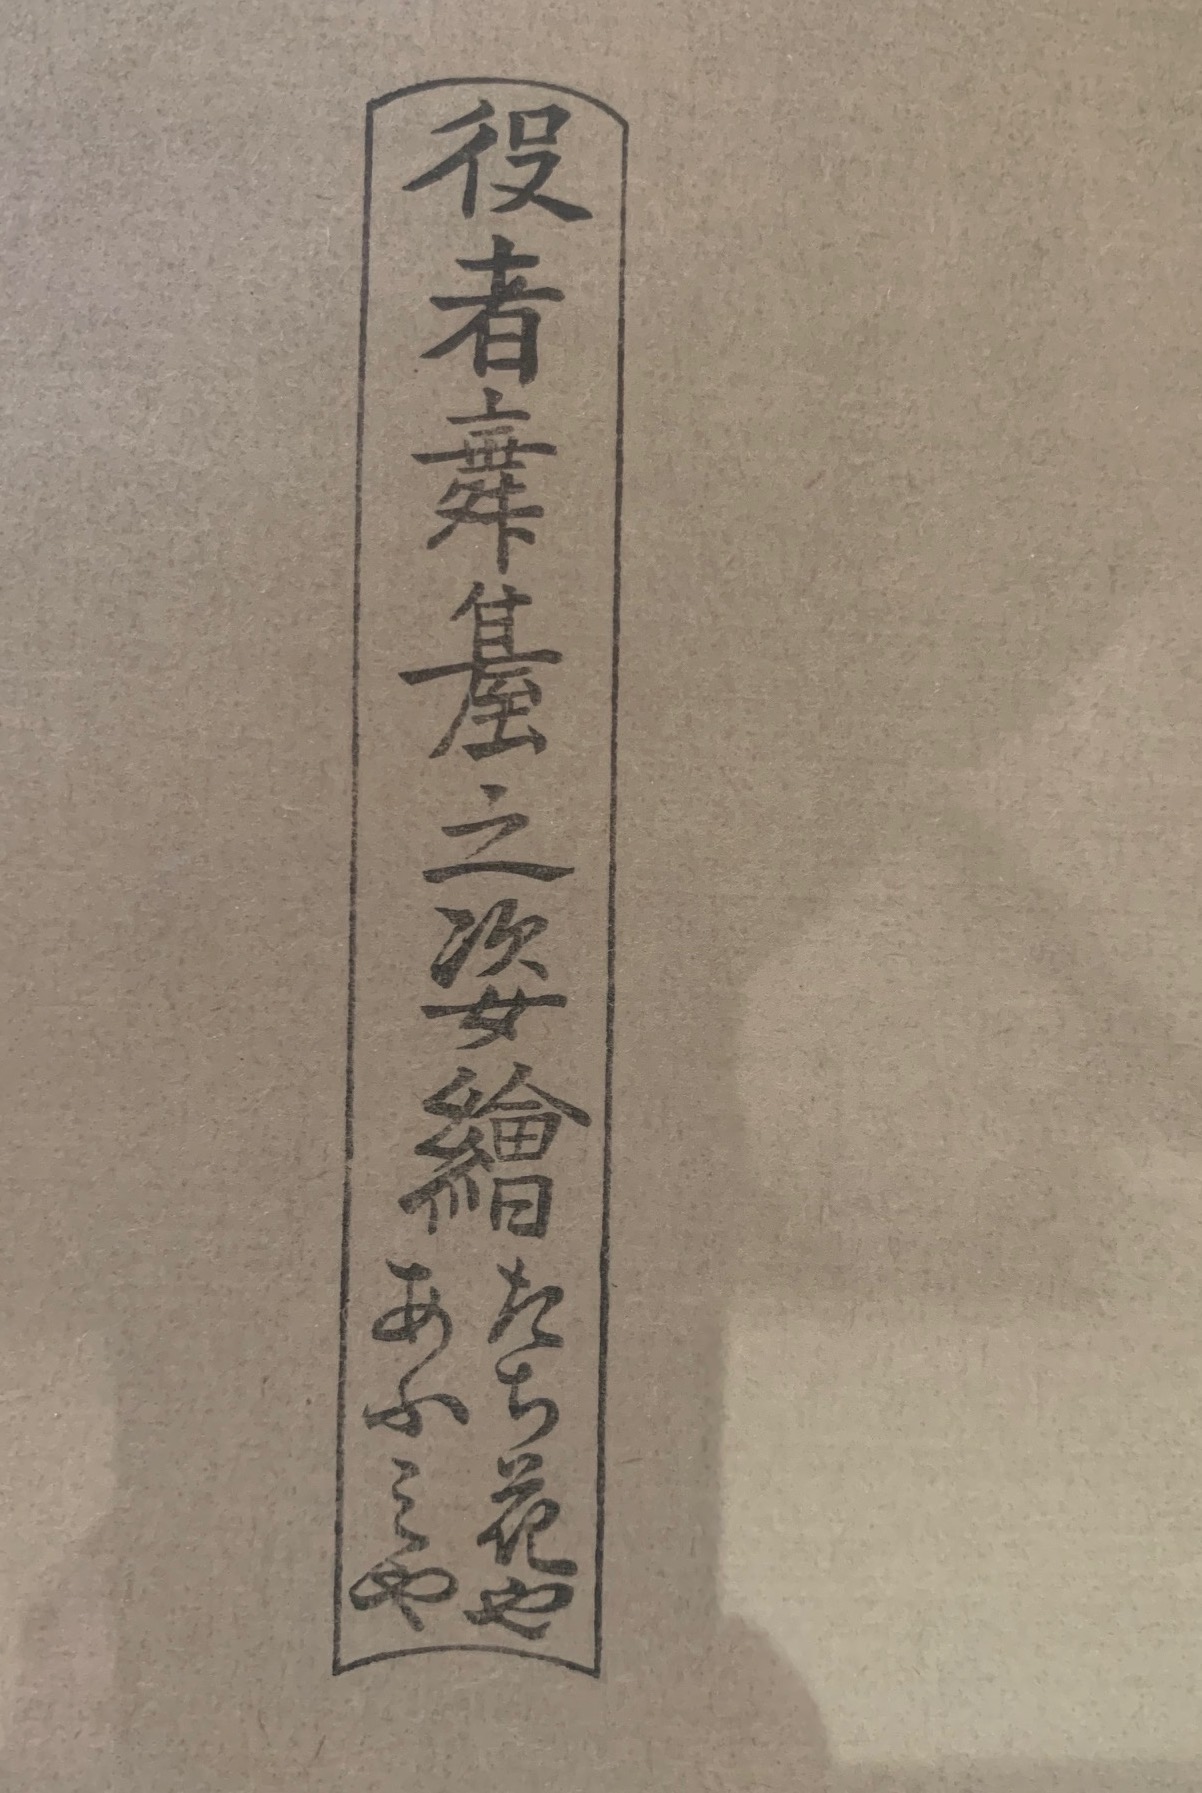 役者舞臺之姿繪
たち花や
あふみや